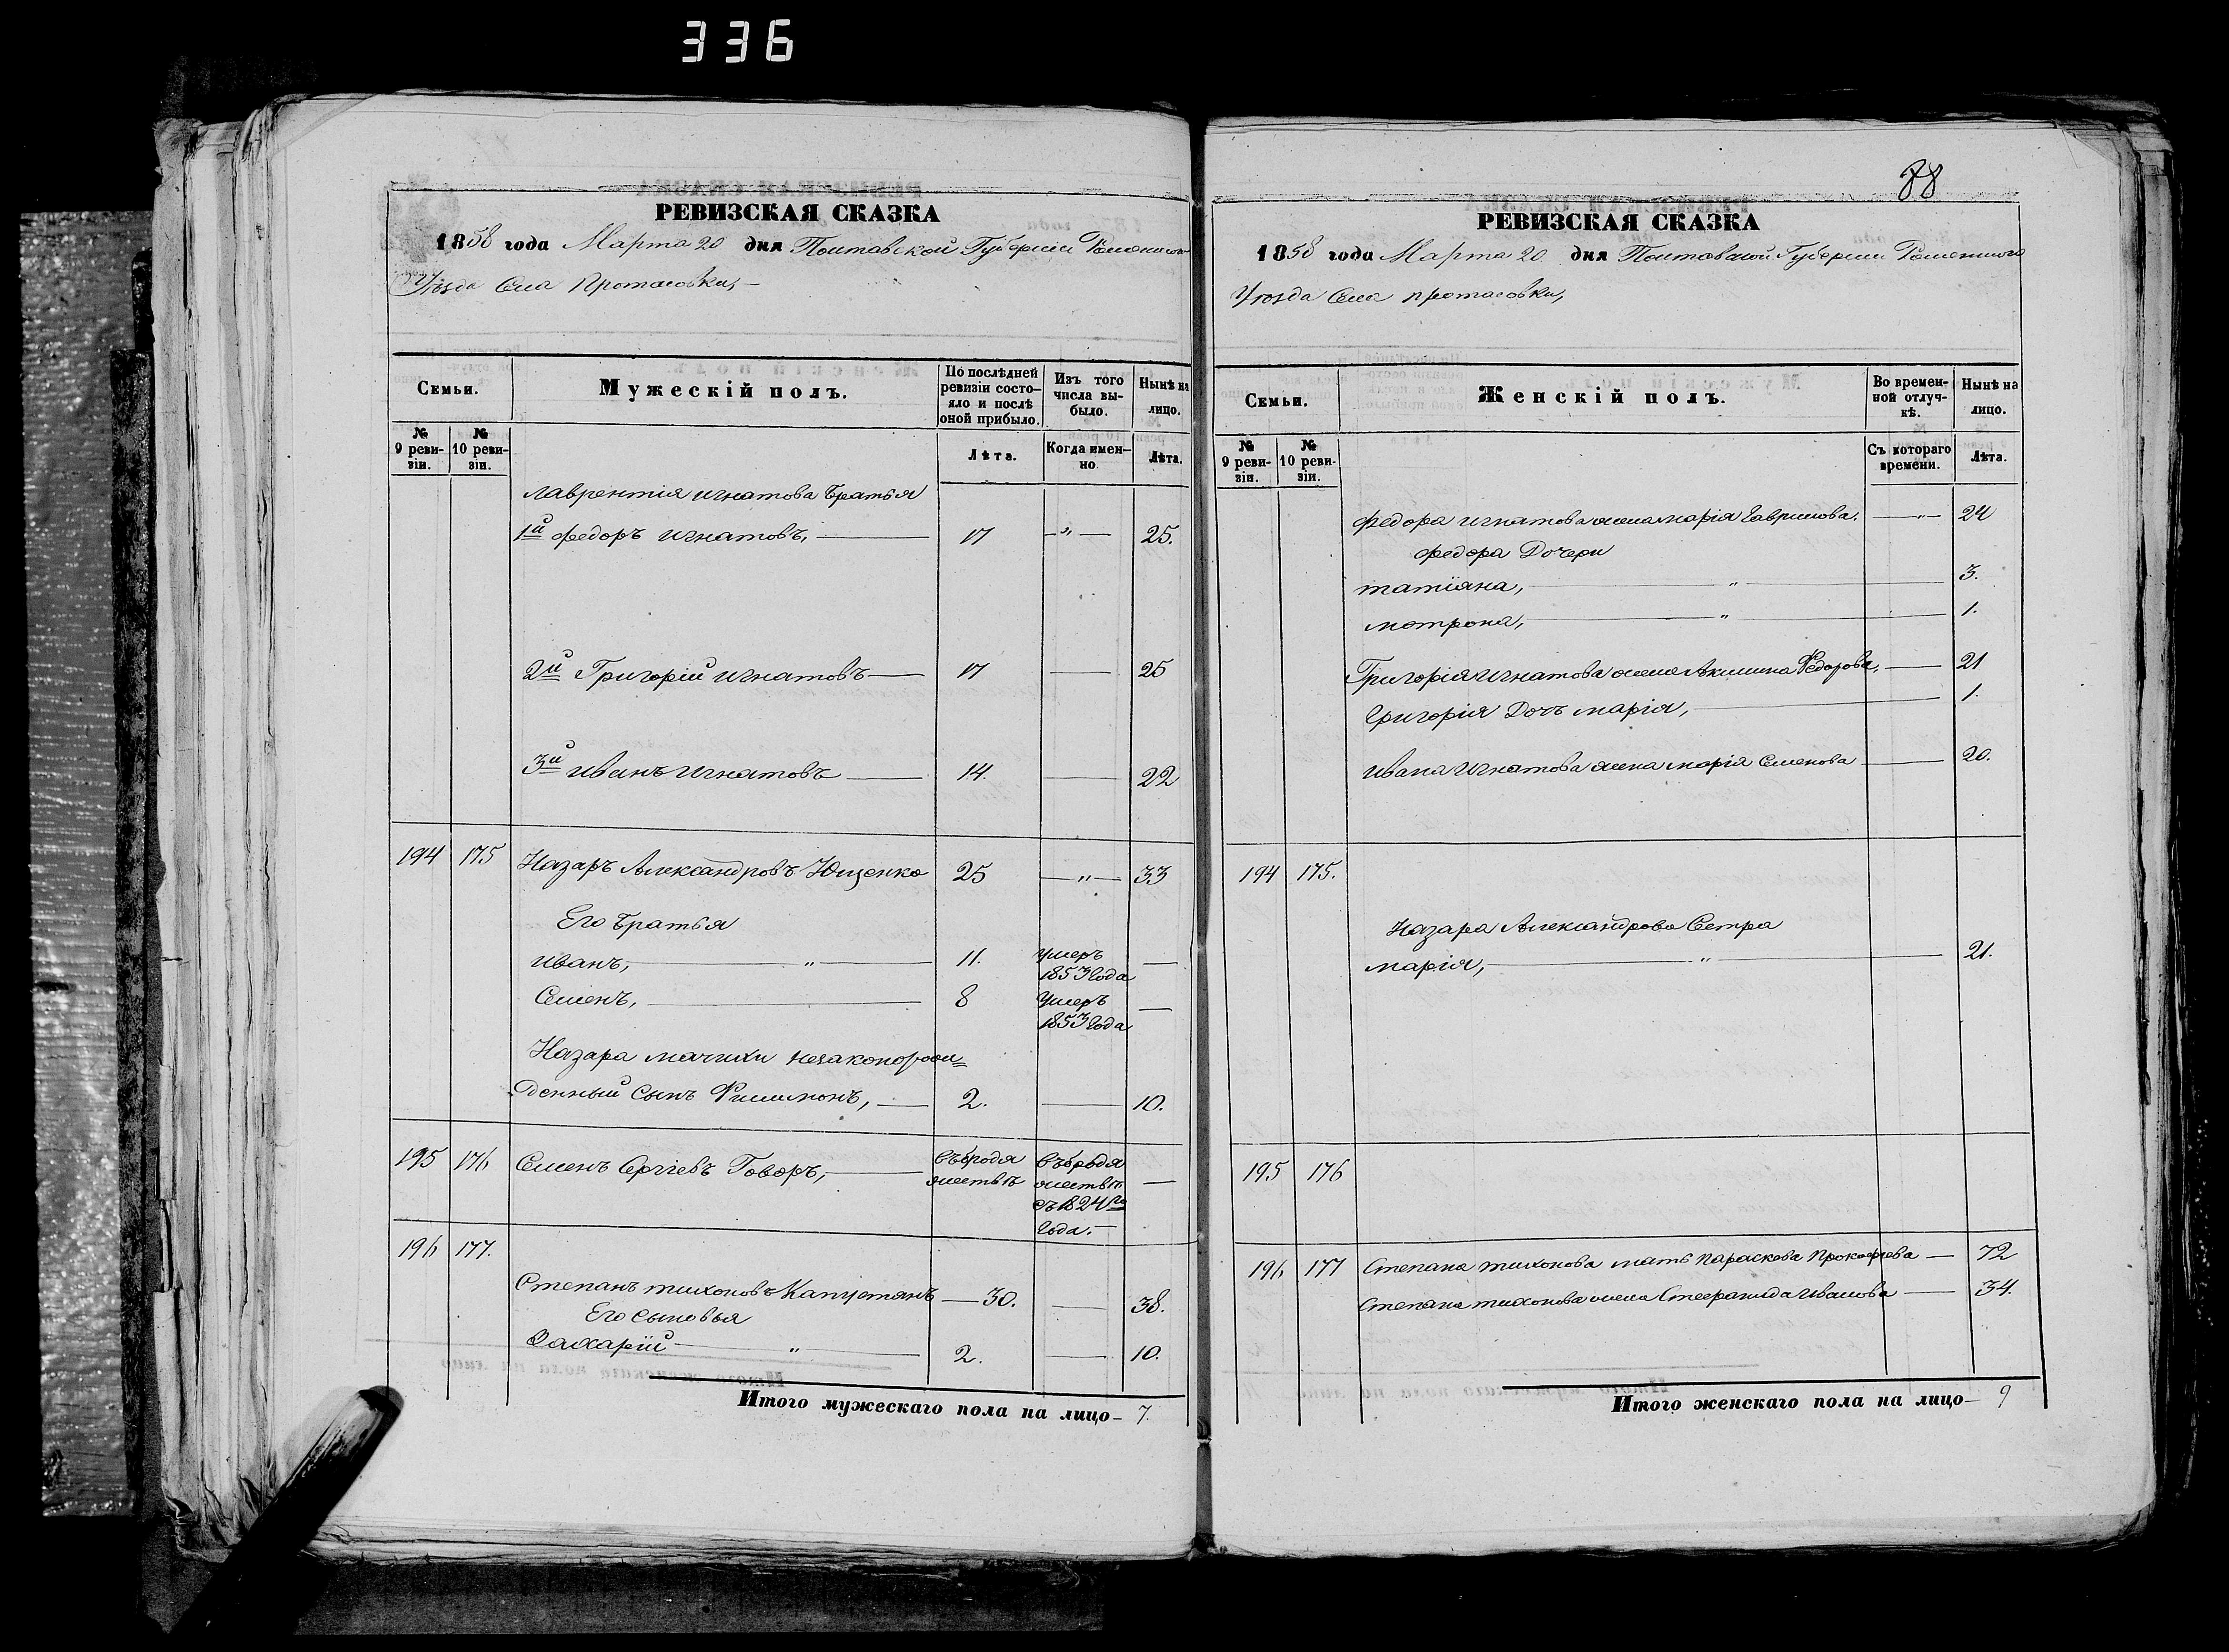 336
РЕВИЗСКАЯ СКАЗКА
1858 года Марта 20 дня Полтавской Губерніи Роменского
Уѣзда Села Протасовки,
Семьи.
Мужескій полъ.
По послѣдней ревизіи состо-
яло и послѣ оной прибыло.
Изъ того числа вы-
было.
Нынѣ на лицо.
№ 9 реви-
зіи.
№ 10 реви-
зіи.
Лѣта.
Когда имен-
но
Лѣта.
Лаврентія Игнатова Братья
1й Федоръ Игнатовъ, 17 — " — 25.
2й Григорій Игнатовъ — 17 — 25
3й Иванъ Игнатовъ — 14. — 22
194 175 Назаръ Александровъ Ющенко 25 — " — 33
Его Братья
Иванъ, — " — 11. Умеръ 1853 года —
Семенъ, — 8 Умеръ 1853 года —
Назара мачихи незаконорож=
денный Сынъ Филимонъ, — 2. — 10.
195 176 Семенъ Сергіевъ Говоръ, — Въ бродяжествѣ Въ бродяжествѣ съ 1824го года. — —
196 177. Степанъ Тихоновъ Капустянъ — 30. — 38.
Его Сыновья
Захарій — " — 2. — 10.
Итого мужескаго пола на лицо — 7.
88
РЕВИЗСКАЯ СКАЗКА
1858 года Марта 20 дня Полтавской Губерніи Роменского
Уѣзда Села Протасовки,
Семьи.
Женскій полъ.
Во времен-
ной отлуч-
кѣ.
Нынѣ на лицо.
№ 9 реви-
зіи.
№ 10 реви-
зіи.
Съ котораго времени.
Лѣта.
Федора Игнатова жена Марія Гаврилова. — " — 24
Федора Дочери
Татіяна, — " — 3.
Мотрона, — " — 1.
Григорія Игнатова жена Акилина Федорова, — 21
Григорія Дочь Марія, — 1.
Ивана Игнатова жена Марія Семенова — 20.
194 175.
Назара Александрова Сестра
Марія, — " — 21.
195 176
196 177 Степана Тихонова мать Параскева Прокофіева — 72
Степана Тихонова жена Стефанида Иванова — 34.
Итого женскаго пола на лицо — 9